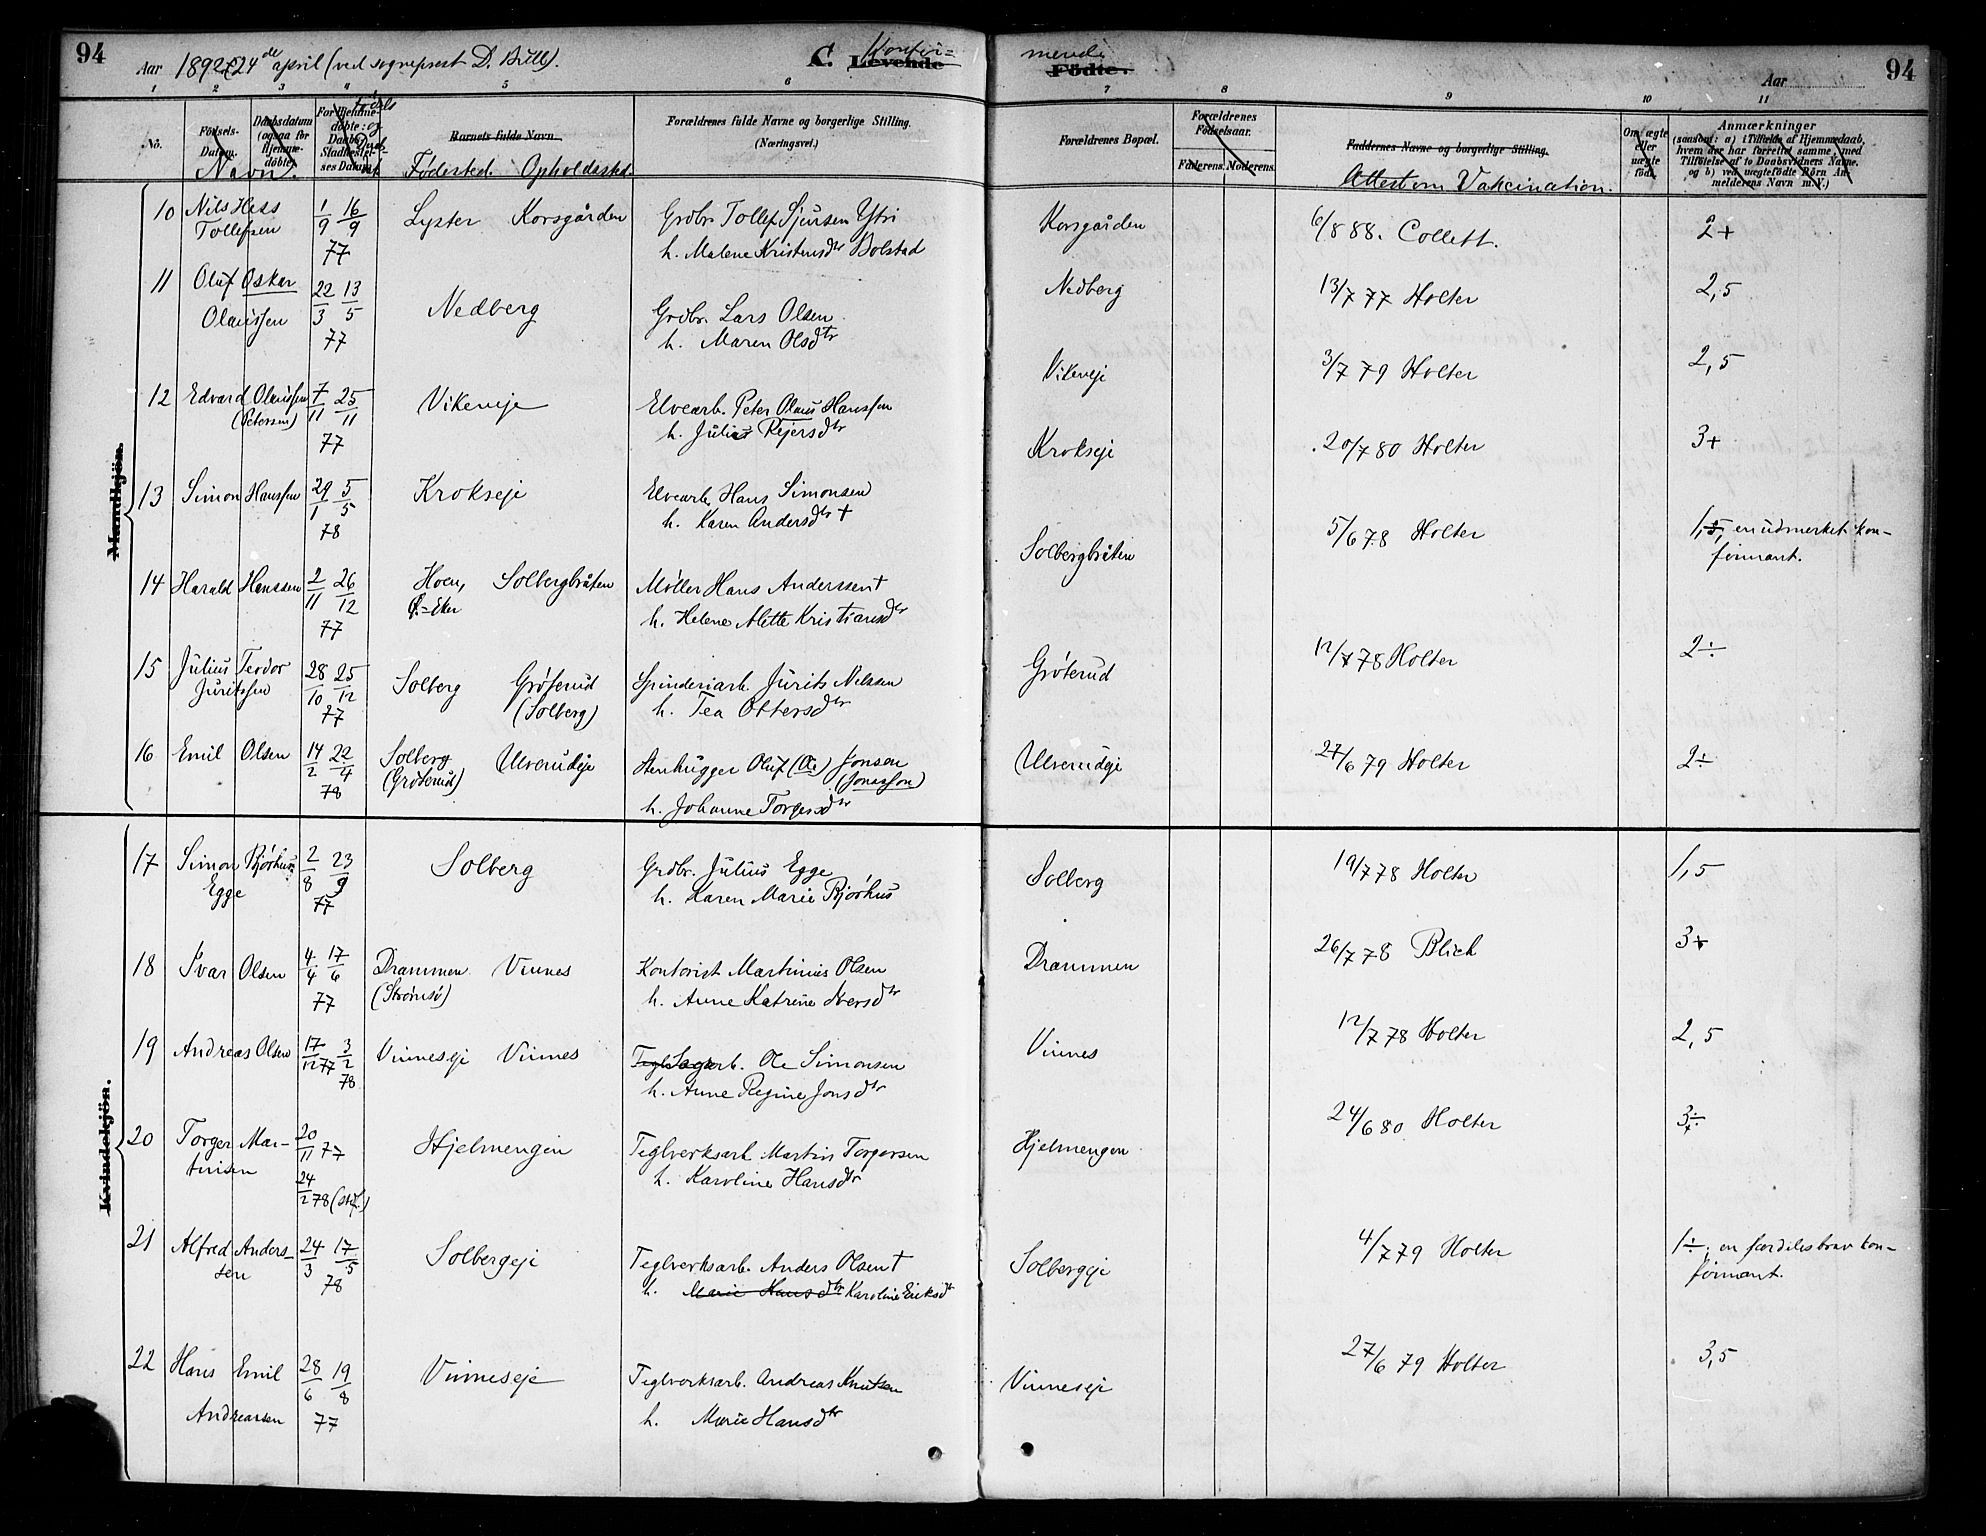 94
Aar 1892 (24de april (ved sogneprest D. Bull).
C. Levende
Konfir=
mende
Födte.
Aar
94
1 2 3 4 5 6 7 8 9 10 11
No.
Födsels-
Datum.
Daabsdatum
(ogsaa for
Hjemme-
döbte).
Navn.
For Hjemme-
döbte:
Daabs-
Stadfæstel-
ses Datum.
fødsels
og
Barnets fulde Navn.
Fødested. Opholdssted.
Forældrenes fulde Navne og borgerlige Stilling.
(Næringsvei.)
Forældrenes Bopæl.
Forældrenes
Födselsaar.
Faderens. Moderens.
Faddernes Navne og borgerlige Stilling.
Attest om Vakcination.
Om ægte
eller
uægte
födt.
Anmærkninger
(saasom: a) i Tilfælde af Hjemmedaab,
hvem der har forrettet samme, med
Tilföielse af to Daabsvidners Navne.
og b) ved uægtefödte Börn An-
melderens Navn m. V.)
Mandkjön.
10 Nils Hess
Tollefsen
1/9 16/9
77
Lyster Korsgården
Grdbr. Tollef Sjursen Ytri
h. Malene Kristensdtr Bolstad
Korsgården
6/8 88. Collett.
2+
11 Oluf Oskar
Olaussen
22/3 13/5
77
Nedberg
Grdbr. Lars Olsen
h. Maren Olsdtr
Nedberg
13/7 77 Holter
2,5
12 Edvard Olaussen
(Petersen)
7/11 25/11
77
Vikeneje
Elvearb. Peter Olaus Hanssen
h. Julie Reiersdtr
Vikeneje
3/7 79 Holter
2,5
13 Simon Hanssen
29/1 5/5
78
Krokseje
Elvearb. Hans Simonsen
h. Karen Andersdtr +
Krokseje
20/7 80 Holter
3+
14 Harald Hanssen
2/11 26/12
77
Hoen, Solbergbråten
Ø.=Eker
Møller Hans Anderssen +
h. Helene Alette Kristiansdtr
Solbergbråten
5/6 78 Holter
1,5, en udmerket kon-
firmant.
15 Julius Teodor
Juritssen
28/10 25/12
77
Solberg Grøterud
(Solberg)
Spinderiarb. Jurits Nilssen
h. Tea Ottersdtr
Grøterud
12/7 78 Holter
2÷
16 Emil Olsen
14/2 22/4
78
Solberg Ulverudeje
(Grøterud)
Stenhugger Oluf (Ole) Jonsen
(Jonassen)
h. Johanne Torgersdtr
Ulverudeje
27/6 79 Holter
2÷
Kvindekjön.
17 Simon Bjørhus
Egge
2/8 23/9
77
Solberg
Grdbr. Julius Egge
h. Karen Marie Bjørhus
Solberg
19/7 78 Holter
1,5
18 Ivar Olsen
4/4 17/6
77
Drammen Vinnes
(Strømsø)
Kontorist Martinius Olsen
h. Anne Katrine Iversdtr
Drammen
26/7 78 Blich
3+
19 Andreas Olsen
17/12 77 3/2
78
Vinneseje Vinnes
Tegl Sagarb. Ole Simonsen
h. Anne Regine Jonsdtr
Vinnes
12/7 78 Holter
2,5
20 Torger Mar-
tinisen
20/11 77
24/2 78 (stf.)
Hjelmengen
Teglverksarb. Martin Torgersen
h. Karoline Hansdtr
Hjelmengen
24/6 80 Holter
3÷
21 Alfred Anders-
sen
24/3 17/5
78
Solbergeje
Teglverksarb. Anders Olsen +
h. Marie Hansdtr Karoline Eriksdtr
Solbergeje
4/7 79 Holter
1÷, en særdeles brav kon-
firmant.
22 Hans Emil
Andreassen
28/6 19/8
77
Vinneseje
Teglverksarb. Andreas Knutsen
h. Marie Hansdtr
Vinneseje
27/6 79 Holter
3,5